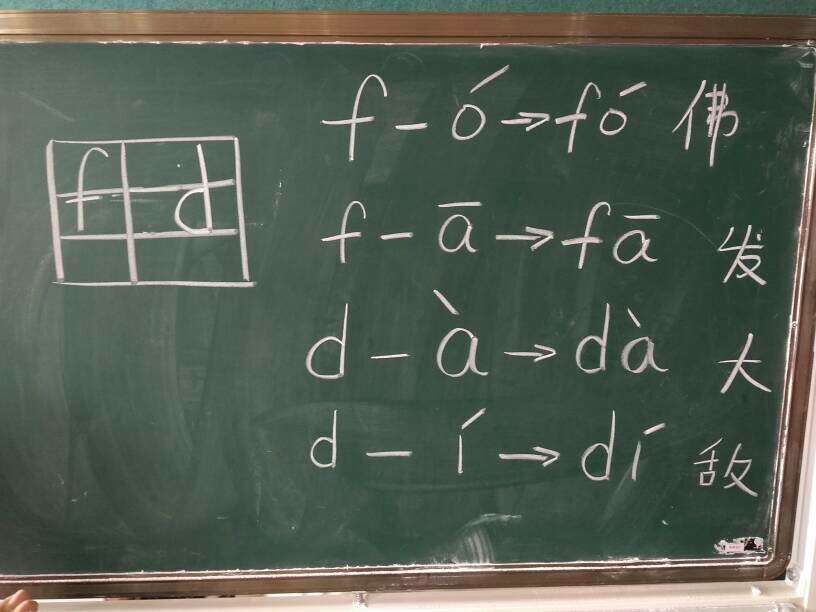 f d
f - ó → fó 佛
f - ā → fā 发
d - à → dà 大
d - í → dí 敌